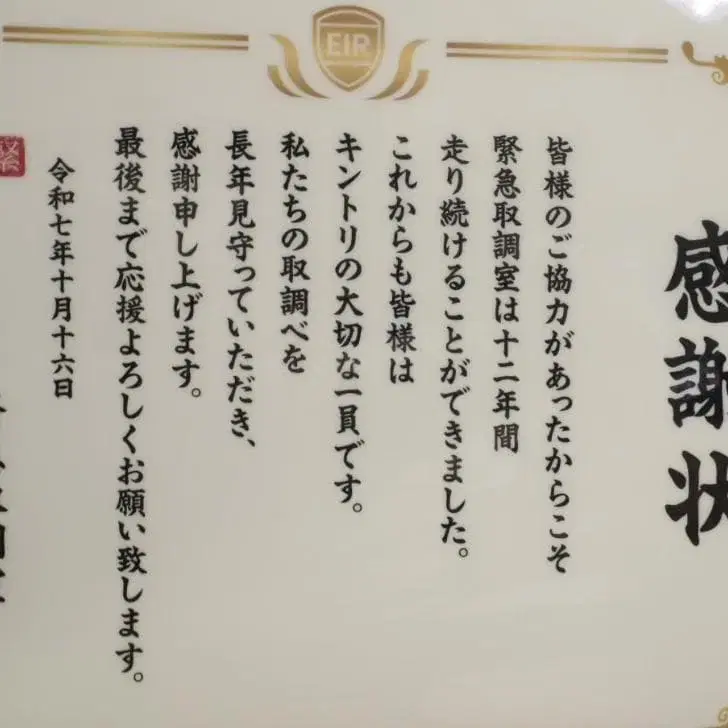 EIR
感謝状
皆様のご協力があったからこそ
緊急取調室は十二年間
走り続けることができました。
これからも皆様は
キントリの大切な一員です。
私たちの取調べを
長年見守っていただき、
感謝申し上げます。
最後まで応援よろしくお願い致します。
令和七年十月十六日